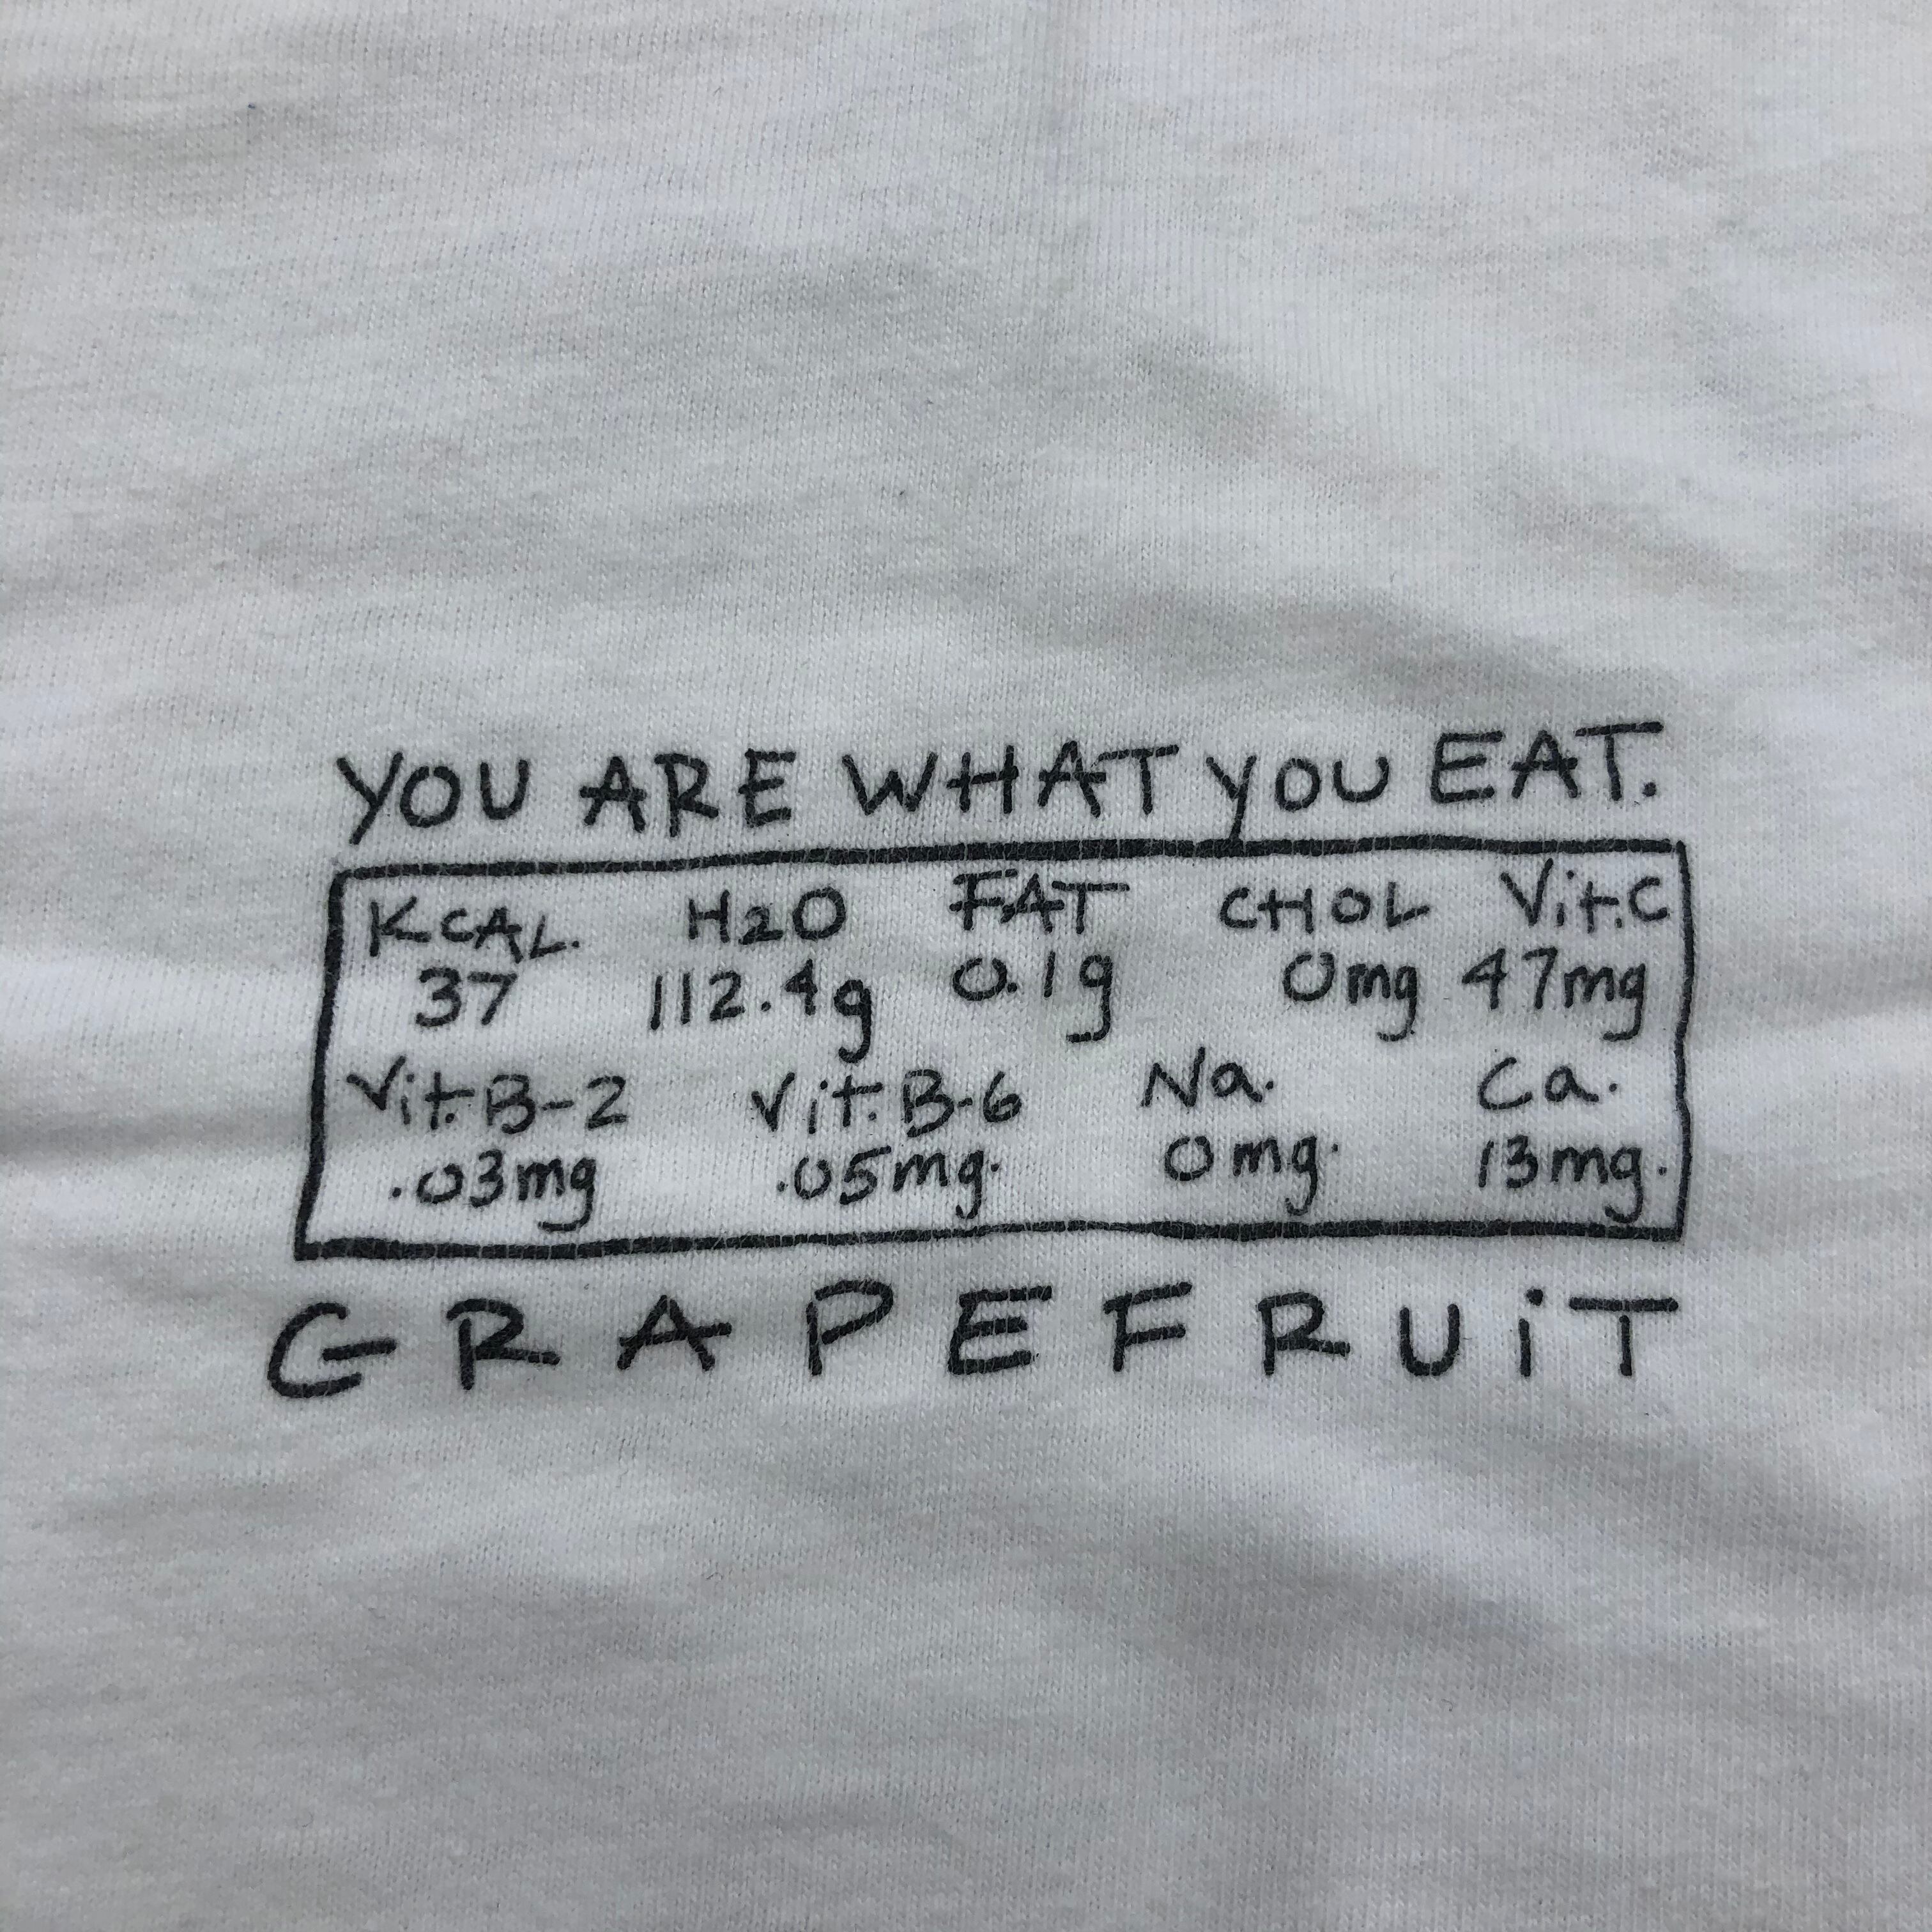 YOU ARE WHAT YOU EAT.
KCAL. H2O FAT CHOL Vit.C
37 112.4g 0.1g 0mg 47mg
Vit.B-2 Vit.B-6 Na. Ca.
.03mg .05mg. 0mg. 13mg.
GRAPEFRUiT